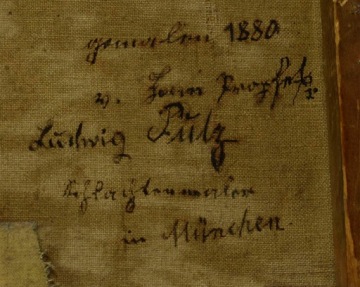 gemalen 1880
v. Herrn Professor
Ludwig Putz
Schlachtenmaler
in München.